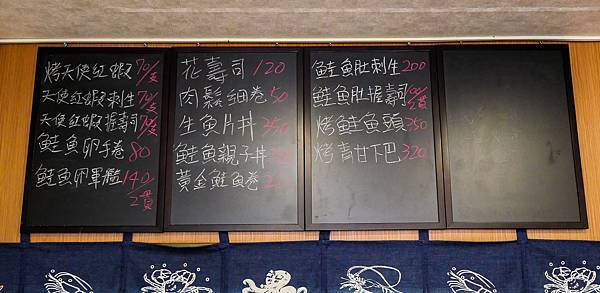 烤天使紅蝦70/支
天使紅蝦刺生70/支
天使紅蝦握壽司70/支
鮭魚卵手卷80
鮭魚卵軍艦140/2貫
花壽司120
肉鬆細卷50
生魚片丼350
鮭魚親子丼
黃金鮭魚卷
鮭魚肚刺生200
鮭魚肚握壽司100/2貫
烤鮭魚頭350
烤青甘下巴320